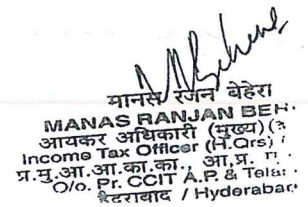 मानस रंजन बेहेरा
MANAS RANJAN BEH
आयकर अधिकारी (मुख्य)
Income Tax Officer (H.Qrs)
प्र.मु.आ.आ.का.का., आ.प्र.
O/o. Pr. CCIT A.P. & Tela
हैदराबाद / Hyderabad